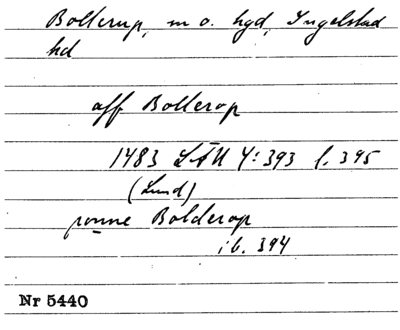 Bollerup, m o. hgd, Ingelstad
hd
aff Bollerop
1483 LÄU 4:393 f. 395
(Lund)
ponne Bolderop
ib. 394
Nr 5440